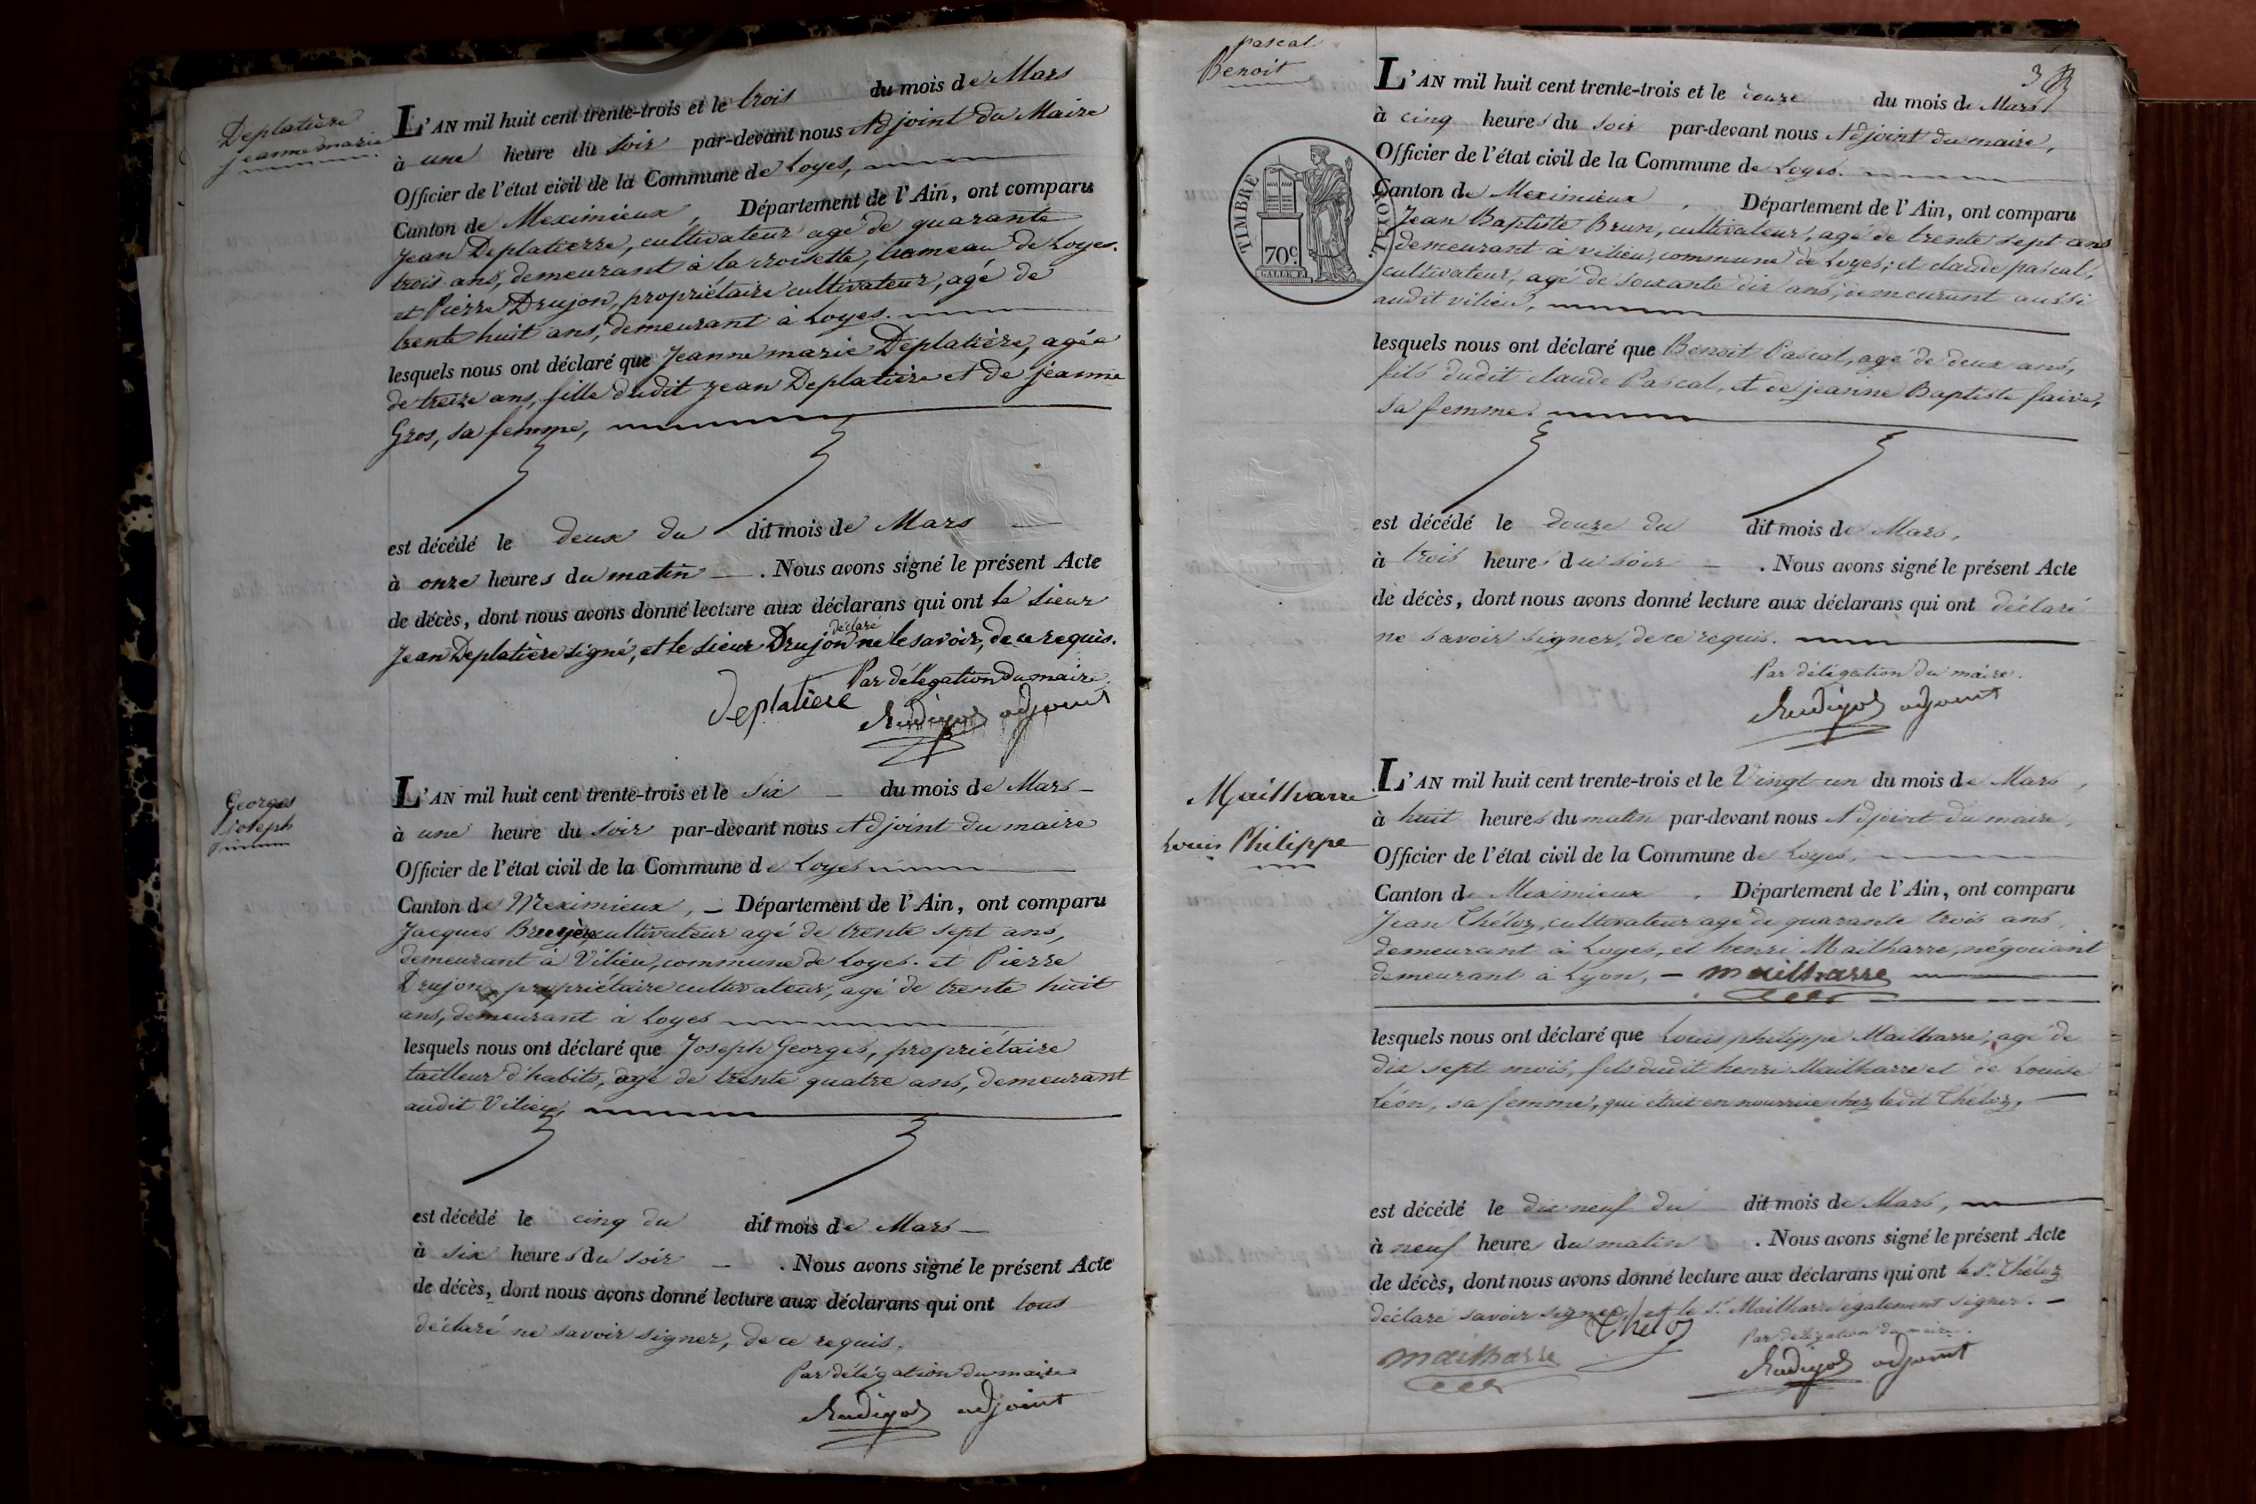 Deplatière
jeanne marie
L'AN mil huit cent trente-trois et le trois du mois de Mars
à une heure du soir par-devant nous Adjoint du Maire
Officier de l'état civil de la Commune de Loyes,
Canton de Meximieux, Département de l'Ain, ont comparu
Jean Deplatierre, cultivateur agé de quarante
trois ans, demeurant à la croisette, hameau de Loyes.
et Pierre Drujon, propriétaire cultivateur, agé de
trente huit ans, demeurant à Loyes.
lesquels nous ont déclaré que Jeanne marie Deplatière, agée
de treize ans, fille dudit jean Deplatière et de jeanne
Gros, sa femme,
est décédé le deux du dit mois de Mars
à onze heures du matin . Nous avons signé le présent Acte
de décès, dont nous avons donné lecture aux déclarans qui ont le sieur
déclaré
Jean Deplatière signé, et le sieur Drujon ne le savoir, de ce requis.
Par délégation du maire.
Deplatiere adjoint
Georges
Joseph
L'AN mil huit cent trente-trois et le six du mois de Mars
à une heure du soir par-devant nous Adjoint du maire
Officier de l'état civil de la Commune de Loyes
Canton de Meximieux, Département de l'Ain, ont comparu
Jacques cultivateur agé de trente sept ans,
demeurant à Vilieu, commune de Loyes. et Pierre
Drujon, propriétaire cultivateur, agé de trente huit
ans, demeurant à Loyes
lesquels nous ont déclaré que Joseph Georges, propriétaire
tailleur d'habits, agé de trente quatre ans, demeurant
audit Vilieu,
est décédé le cinq du dit mois de Mars
à six heures du soir . Nous avons signé le présent Acte
de décès, dont nous avons donné lecture aux déclarans qui ont tous
déclaré ne savoir signer, de ce requis.
Par délégation du maire
adjoint
pascal
Benoit
3
TIMBRE ROYAL
70c
L'AN mil huit cent trente-trois et le douze du mois de Mars
à cinq heures du soir par-devant nous Adjoint du maire,
Officier de l'état civil de la Commune de Loyes.
Canton de Meximieux, Département de l'Ain, ont comparu
Jean Baptiste Brun, cultivateur, agé de trente sept ans
demeurant à vilieu, commune de Loyes; et claude pascal,
cultivateur, agé de soixante dix ans, demeurant aussi
audit vilieu,
lesquels nous ont déclaré que Benoit Pascal, agé de deux ans,
fils dudit claude Pascal, et de jeanne Baptiste faivre,
sa femme.
est décédé le douze du dit mois de Mars,
à trois heures du soir . Nous avons signé le présent Acte
de décès, dont nous avons donné lecture aux déclarans qui ont déclaré
ne savoir signer, de ce requis.
Par délégation du maire.
adjoint
Mailharre
Louis Philippe
L'AN mil huit cent trente-trois et le Vingt un du mois de Mars,
à huit heures du matin par-devant nous Adjoint du maire,
Officier de l'état civil de la Commune de Loyes,
Canton de Meximieux, Département de l'Ain, ont comparu
Jean Théloz, cultivateur agé de quarante trois ans,
demeurant à Loyes, et henri Mailharre, négociant
demeurant à Lyon, mailharre
lesquels nous ont déclaré que Louis philippe Mailharre, agé de
dix sept mois, fils dudit henri Mailharre et de Louise
Léon, sa femme, qui était en nourrice chez ledit Théloz,
est décédé le dix neuf du dit mois de Mars,
à neuf heures du matin . Nous avons signé le présent Acte
de décès, dont nous avons donné lecture aux déclarans qui ont le Sr. Théloz
déclaré savoir signer, et le Sr. Mailharre également signer.
Théloz
Par délégation du maire.
mailharre adjoint